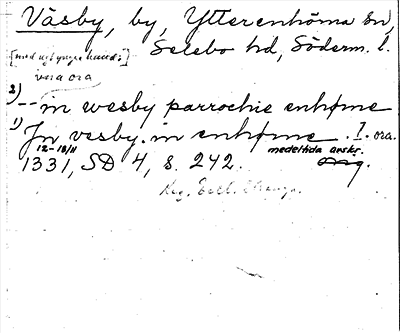 Väsby, by, Ytterenhörna sn,
Selebo hd, Söderm. l.
[med ngt yngre hand:]
vera ora
2) -- in wesby parrochie enhøme
1) Jn vesby. in enhøme. I. ora.
12-18/11 medeltida avskr.
1331, SD 4, s. 242.
Reg. Eccl.